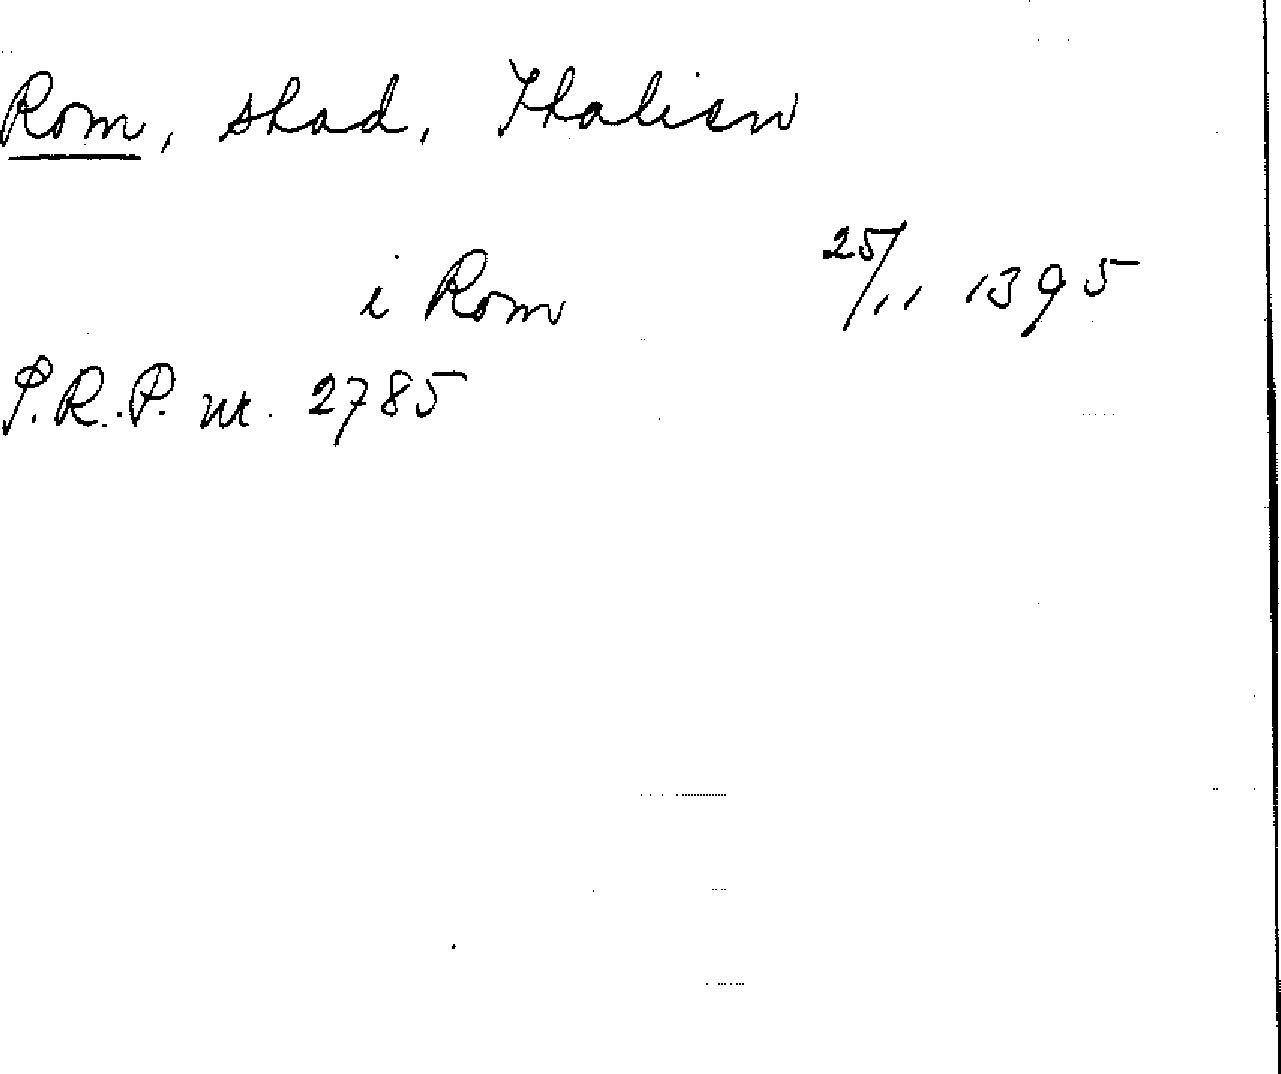 Rom, stad, Italien
i Rom 25/11 1395
S.R.P. nr. 2785